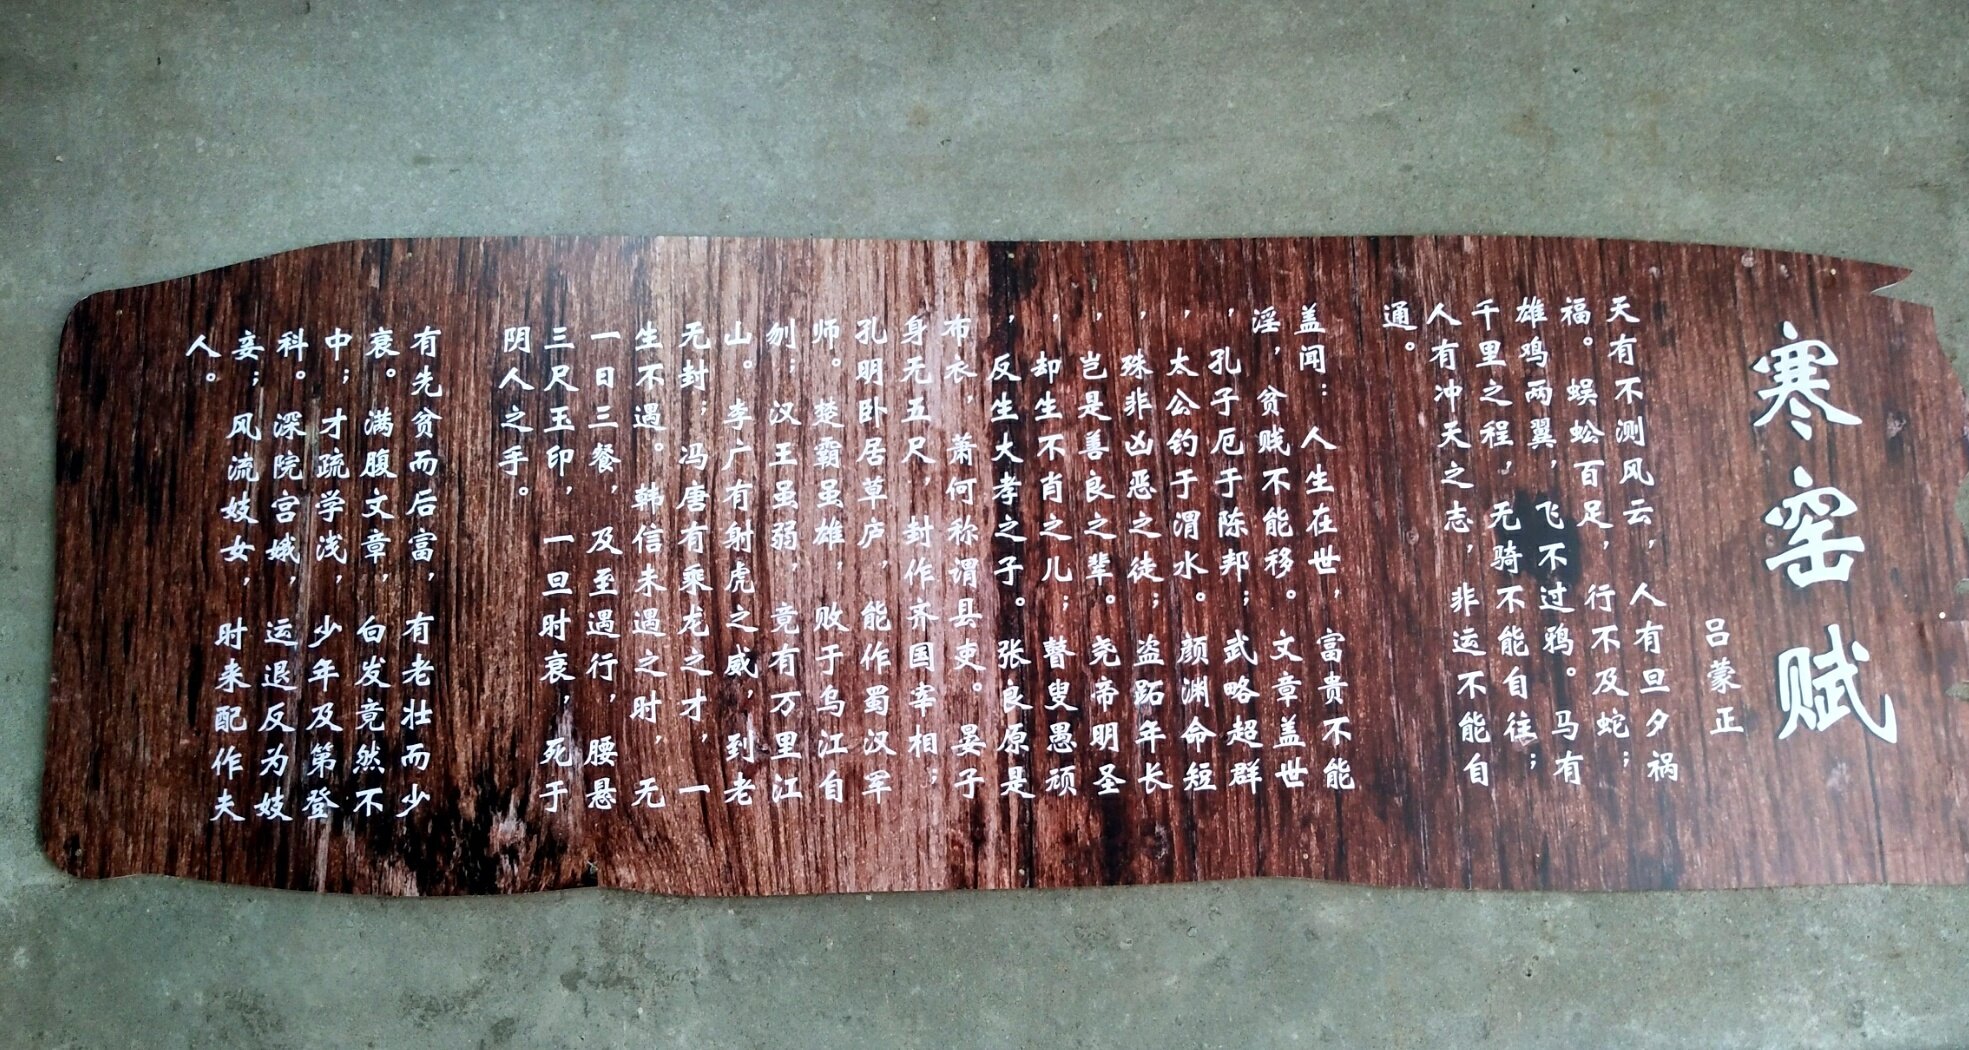 寒窑赋
吕蒙正
天有不测风云，人有旦夕祸
福。蜈蚣百足，行不及蛇；
雄鸡两翼，飞不过鸦。马有
千里之程，无骑不能自往；
人有冲天之志，非运不能自
通。
盖闻：人生在世，富贵不能
淫，贫贱不能移。文章盖世
，孔子厄于陈邦；武略超群
，太公钓于渭水。颜渊命短
，殊非凶恶之徒；盗跖年长
，岂是善良之辈。尧帝明圣
，却生不肖之儿；瞽叟愚顽
，反生大孝之子。张良原是
布衣，萧何称谓县吏。晏子
身无五尺，封作齐国宰相；
孔明卧居草庐，能作蜀汉军
师。楚霸虽雄，败于乌江自
刎；汉王虽弱，竟有万里江
山。李广有射虎之威，到老
无封；冯唐有乘龙之才，一
生不遇。韩信未遇之时，无
一日三餐，及至遇行，腰悬
三尺玉印，一旦时衰，死于
阴人之手。
有先贫而后富，有老壮而少
衰。满腹文章，白发竟然不
中；才疏学浅，少年及第登
科。深院宫娥，运退反为妓
妾；风流妓女，时来配作夫
人。